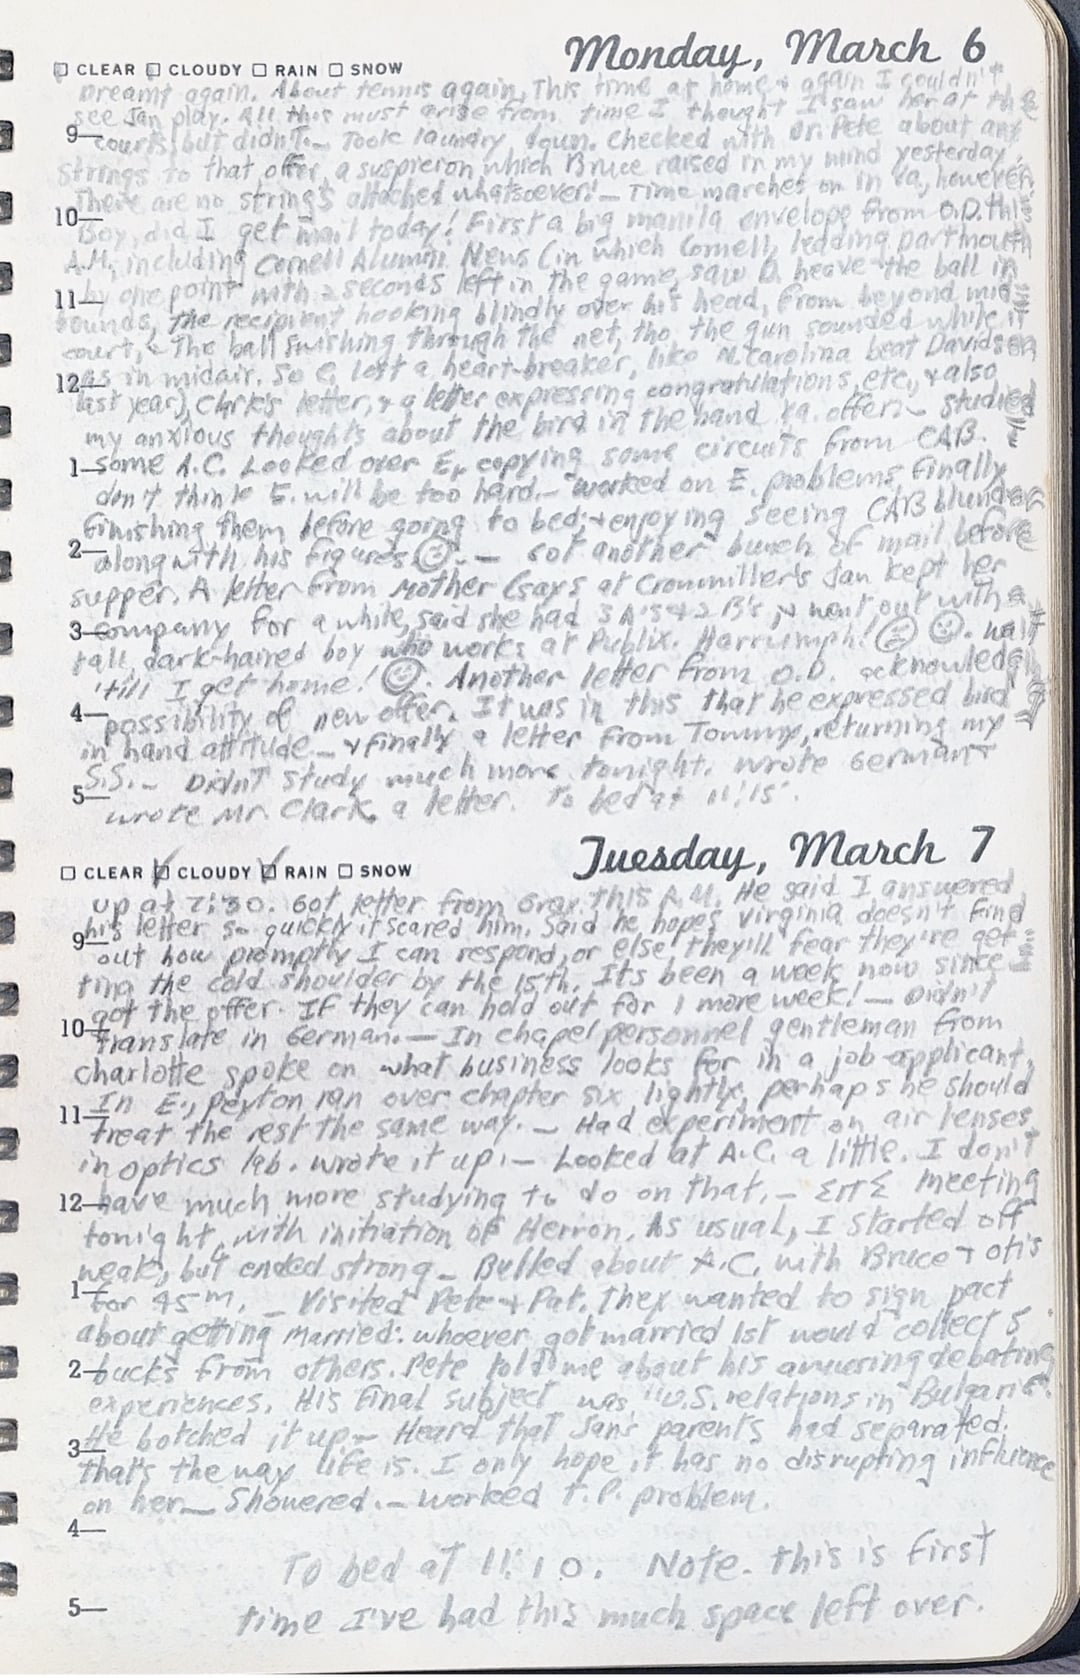 Monday, March 6
CLEAR CLOUDY RAIN SNOW
Dreamt again. About tennis again, This time at home & again I couldn't
see Jan play. All this must arise from time I thought I saw her at the
9— courts, but didn't.— Took laundry down. Checked with Dr. Pete about any
strings to that offer, a suspicion which Bruce raised in my mind yesterday.
There are no strings attached whatsoever!— Time marches on in Va, however.
10— Boy, did I get mail today! First a big manila envelope from O.D. this
A.M., including Cornell Alumni News (in which Cornell, ledding Dartmouth
by one point with 2 seconds left in the game, saw D. heave the ball in
11— bounds, the recipient hooking blindly over his head, from beyond mid
court, & the ball swishing through the net, tho the gun sounded while it
was in midair. So C. lost a heart-breaker, like N. Carolina beat Davidson
12— last year), Clark's letter, & a letter expressing congratulations, etc, & also
my anxious thoughts about the bird in the hand Va. offer.— Studied
1— some A.C. Looked over E, copying some circuits from CAB.
don't think E. will be too hard.— Worked on E. problems finally
finishing them before going to bed; & enjoying seeing CAB blunder
2— along with his figures ☺.— Got another bunch of mail before
supper. A letter from Mother (says at Crowmiller's Jan kept her
3— company for a while, said she had 3 A's & 2 B's, & went out with a
tall, dark-haired boy who works at Publix. Harrumph! ☹ ☺. Wait
'till I get home! ☺. Another letter from O.D. acknowledging
4— possibility of new offer. It was in this that he expressed bird
in hand attitude— & finally a letter from Tommy, returning my
S.S.— Didn't study much more tonight. Wrote German &
5— wrote Mr. Clark a letter. To bed at 11:15.
Tuesday, March 7
CLEAR CLOUDY RAIN SNOW
Up at 7:30. Got letter from Gray this A.M. He said I answered
9— his letter so quickly it scared him. Said he hopes Virginia doesn't find
out how promptly I can respond, or else they'll fear they're get-
ting the cold shoulder by the 15th. Its been a week now since I
got the offer. If they can hold out for 1 more week!— Didn't
10— translate in German.— In chapel personnel gentleman from
Charlotte spoke on what business looks for in a job-applicant.
In E., Peyton ran over chapter six lightly, perhaps he should
11— treat the rest the same way.— Had experiment on air lenses
in optics lab. Wrote it up.— Looked at A.C. a little. I don't
12— have much more studying to do on that.— ΣΠΣ meeting
tonight, with initiation of Herron. As usual, I started off
weak, but ended strong— Bulled about A.C. with Bruce & Otis
1— for 45 m. — Visited Pete & Pat. They wanted to sign pact
about getting married: whoever got married 1st would collect 5
2— bucks from others. Pete told me about his amusing debating
experiences. His final subject was "U.S. relations in Bulgaria".
He botched it up.— Heard that Jan's parents had separated.
3— that's the way life is. I only hope it has no disrupting influence
on her— Showered.— Worked T.P. problem.
4—
To bed at 11:10. Note. this is first
5— time I've had this much space left over.